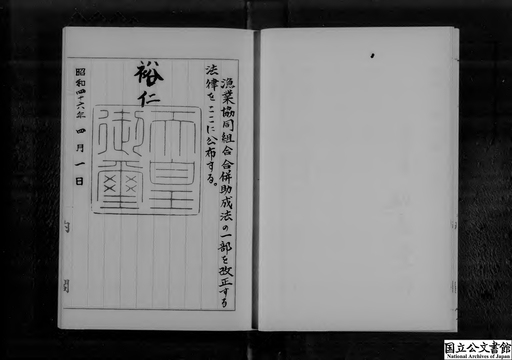 漁業協同組合合併助成法の一部を改正する
法律をここに公布する。
裕仁
天皇
御璽
昭和四十六年四月一日
国立公文書館
National Archives of Japan